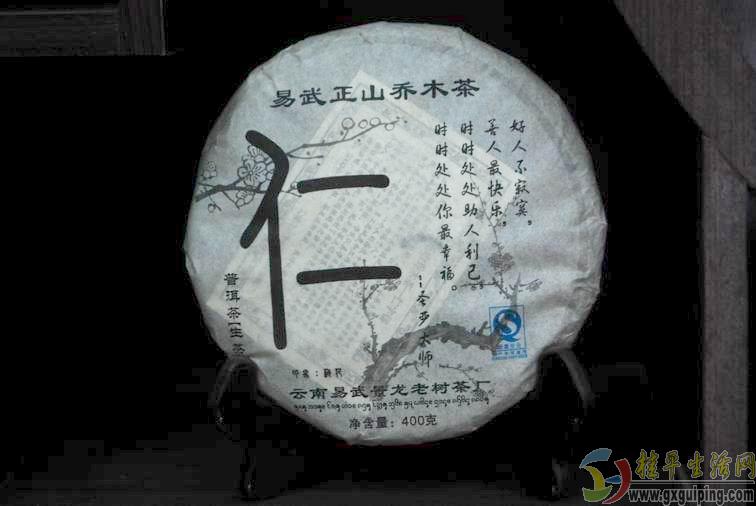 易武正山乔木茶
仁
好人不寂寞，
善人最快乐，
时时处处助人利己。
时时处处你最幸福。
--圣严大师
普洱茶[生茶
云南易武景龙老树茶厂
净含量：400克
桂平生活网
www.gxguiping.com